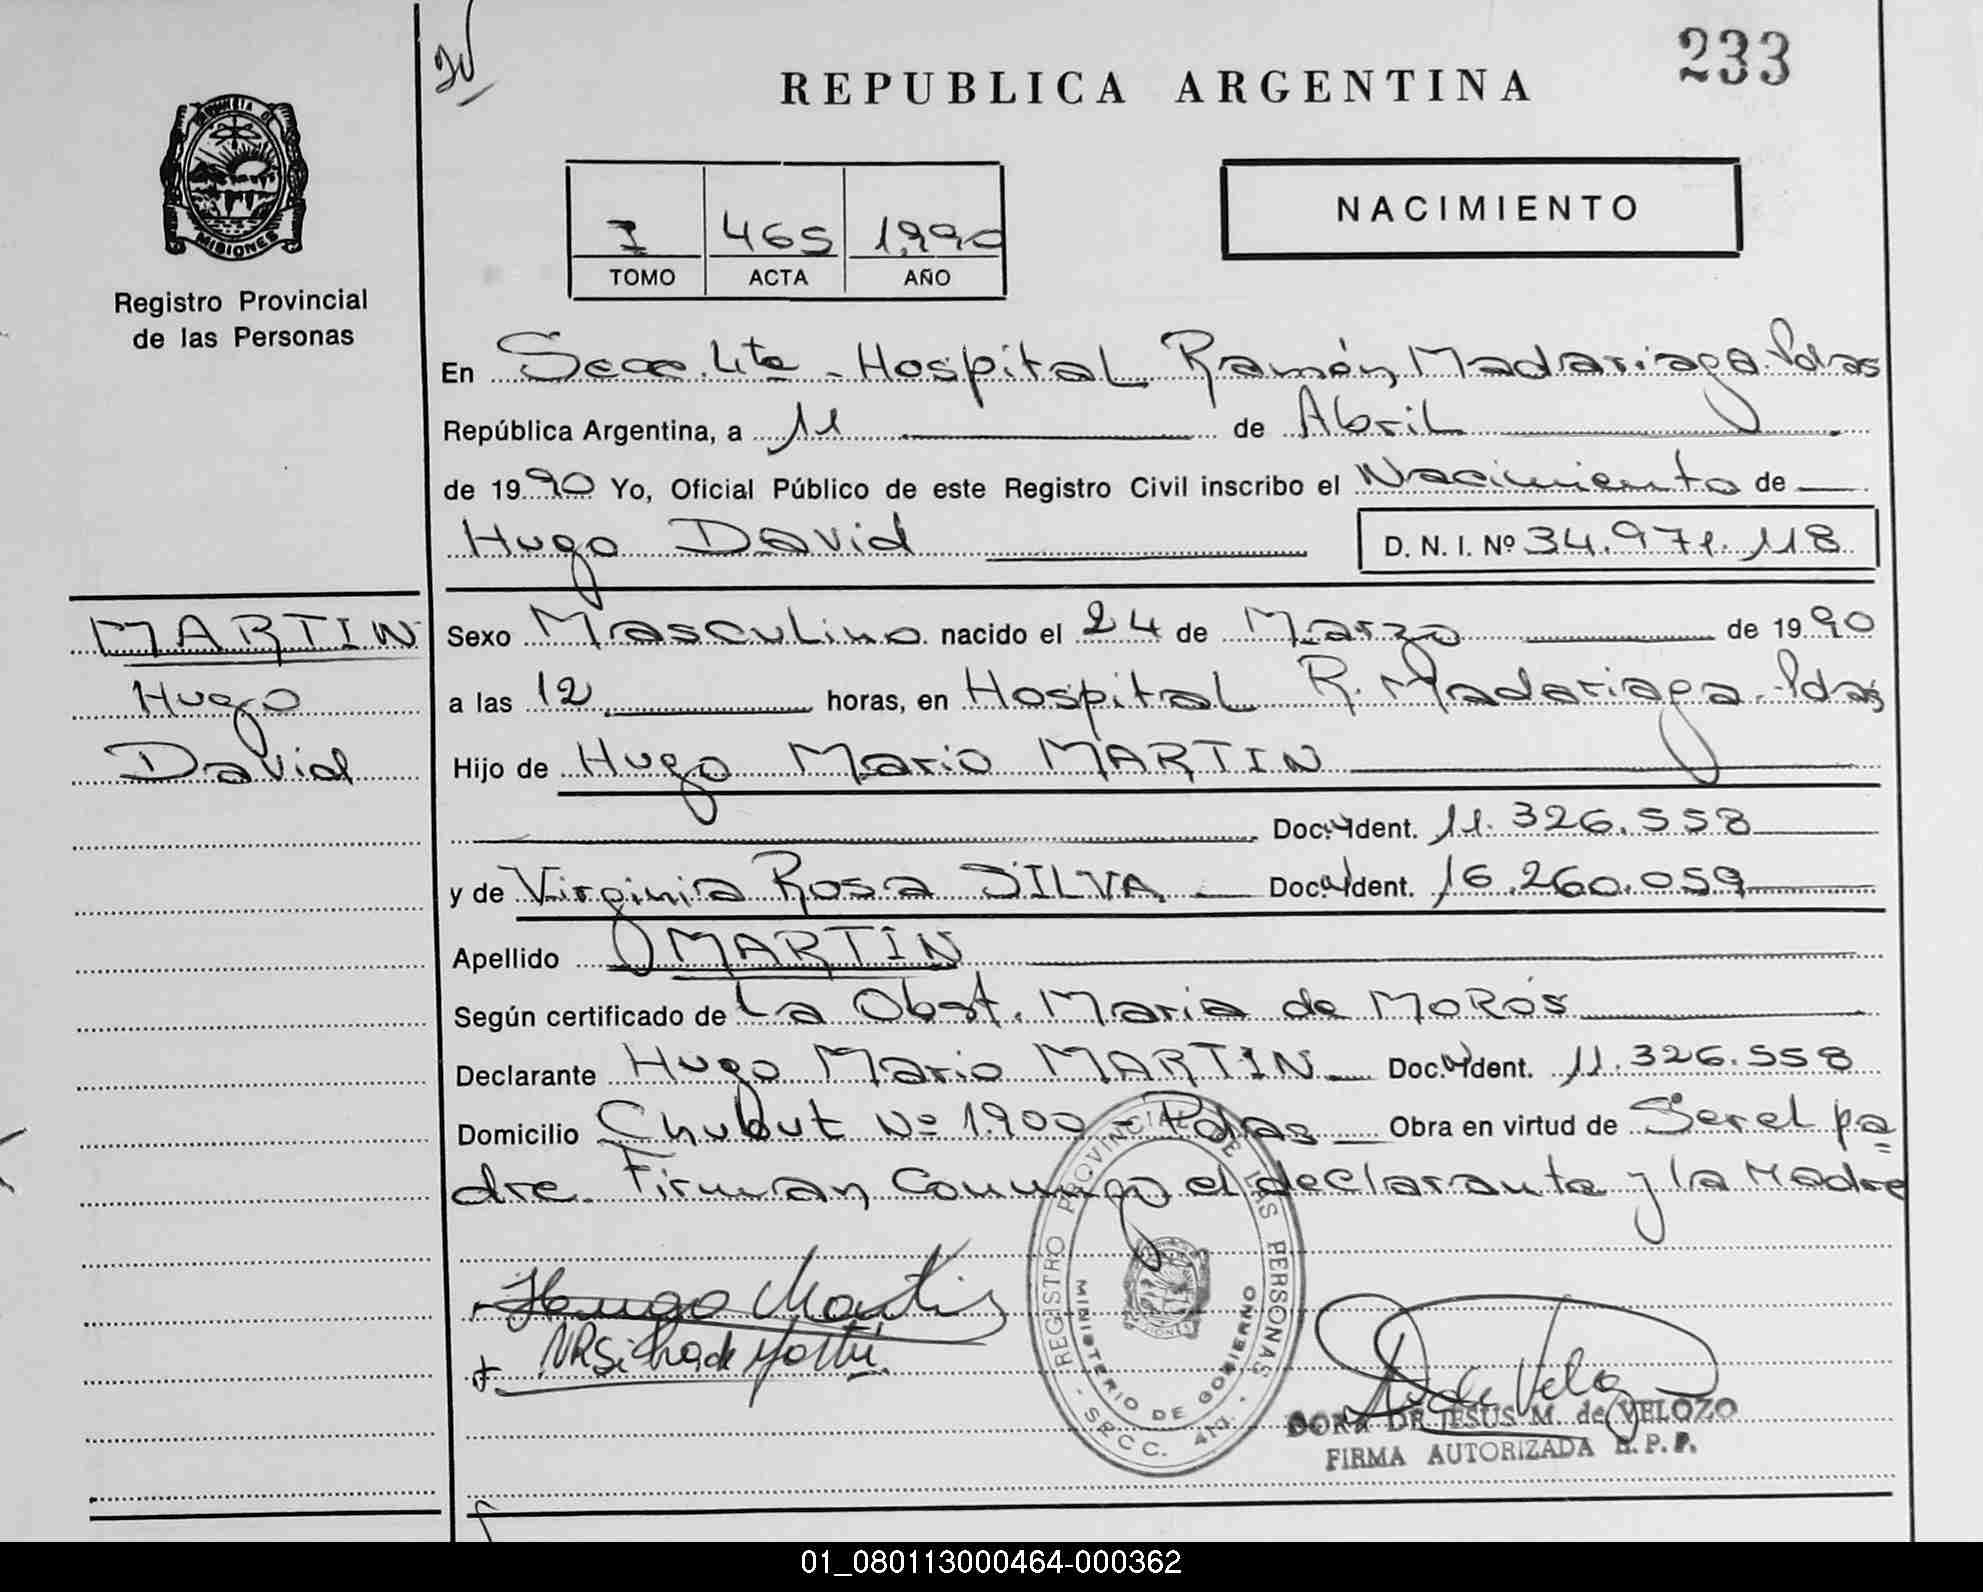 233
REPUBLICA ARGENTINA
PROVINCIA DE
MISIONES
Registro Provincial
de las Personas
NACIMIENTO
I 465 1.990
TOMO ACTA AÑO
En Secc. 4ta - Hospital Ramón Madariaga. Pdas
República Argentina, a 11 de Abril
de 1990 Yo, Oficial Público de este Registro Civil inscribo el Nacimiento de
Hugo David D. N. I. Nº 34.971.118
MARTIN
Hugo
David
Sexo Masculino nacido el 24 de Marzo de 1990
a las 12 horas, en Hospital R. Madariaga - Pdas
Hijo de Hugo Mario MARTIN
Doc. Ident. 11.326.558
y de Virginia Rosa SILVA Doc. Ident. 16.260.059
Apellido MARTIN
Según certificado de La Obst. Maria de MOROS
Declarante Hugo Mario MARTIN Doc. Ident. 11.326.558
Domicilio Chubut Nº 1.900 - Pdas Obra en virtud de Ser el pa
dre. Firman Conmigo el declarante y la Madre
REGISTRO PROVINCIAL DE LAS PERSONAS
MINISTERIO DE GOBIERNO
Hugo Martin
de Velozo
DORA DE JESUS M. de VELOZO
FIRMA AUTORIZADA R.P.P.
01_080113000464-000362